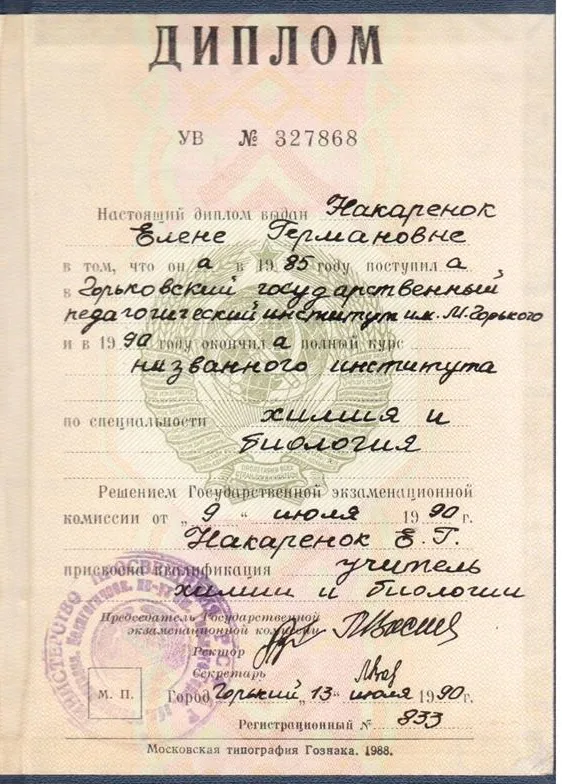 ДИПЛОМ
УВ № 327868
Настоящий диплом выдан Накаренок
Елене Германовне
в том, что он а в 1985 году поступил а
в Горьковский государственный
педагогический институт им. М. Горького
и в 1990 году окончил а полный курс
названного института
по специальности химия и
биология
Решением Государственной экзаменационной
комиссии от „ 9 “ июля 1990 г.
Накаренок Е. Г.
присвоена квалификация учитель
химии и биологии
Председатель Государственной
экзаменационной комиссии
Ректор
Секретарь
М. П.
Город Горький „ 13 “ июля 1990 г.
Регистрационный № 833
Московская типография Гознака. 1988.